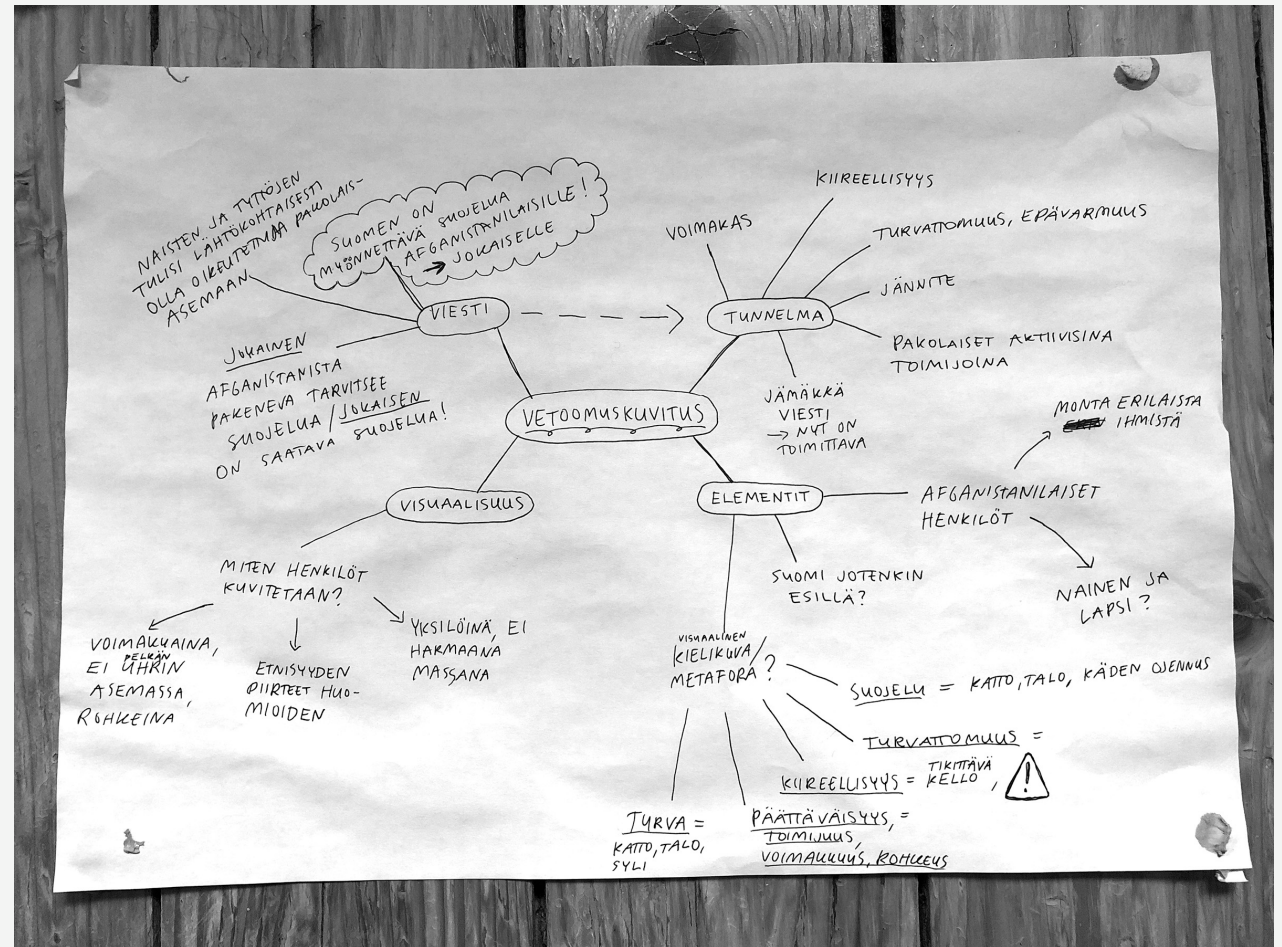 VETOOMUSKUVITUS
VIESTI
NAISTEN JA TYTTÖJEN
TULISI LÄHTÖKOHTAISESTI
OLLA OIKEUTETTUJA PAKOLAIS-
ASEMAAN
SUOMEN ON
MYÖNNETTÄVÄ SUOJELUA
AFGANISTANILAISILLE!
→ JOKAISELLE
JOKAINEN
AFGANISTANISTA
PAKENEVA TARVITSEE
SUOJELUA / JOKAISEN
ON SAATAVA SUOJELUA!
TUNNELMA
VOIMAKAS
KIIREELLISYYS
TURVATTOMUUS, EPÄVARMUUS
JÄNNITE
PAKOLAISET AKTIIVISINA
TOIMIJOINA
JÄMÄKKÄ
VIESTI
→ NYT ON
TOIMITTAVA
VISUAALISUUS
MITEN HENKILÖT
KUVITETAAN?
VOIMAKKAINA,
EI PELKÄN UHRIN
ASEMASSA,
ROHKEINA
ETNISYYDEN
PIIRTEET HUO-
MIOIDEN
YKSILÖINÄ, EI
HARMAANA
MASSANA
ELEMENTIT
AFGANISTANILAISET
HENKILÖT
MONTA ERILAISTA
IHMISTÄ
NAINEN JA
LAPSI?
SUOMI JOTENKIN
ESILLÄ?
VISUAALINEN
KIELIKUVA/
METAFORA?
SUOJELU = KATTO, TALO, KÄDEN OJENNUS
TURVATTOMUUS =
KIIREELLISYYS = TIKITTÄVÄ KELLO, !
PÄÄTTÄVÄISYYS, =
TOIMIJUUS,
VOIMAKKUUS, ROHKEUS
TURVA =
KATTO, TALO,
SYLI